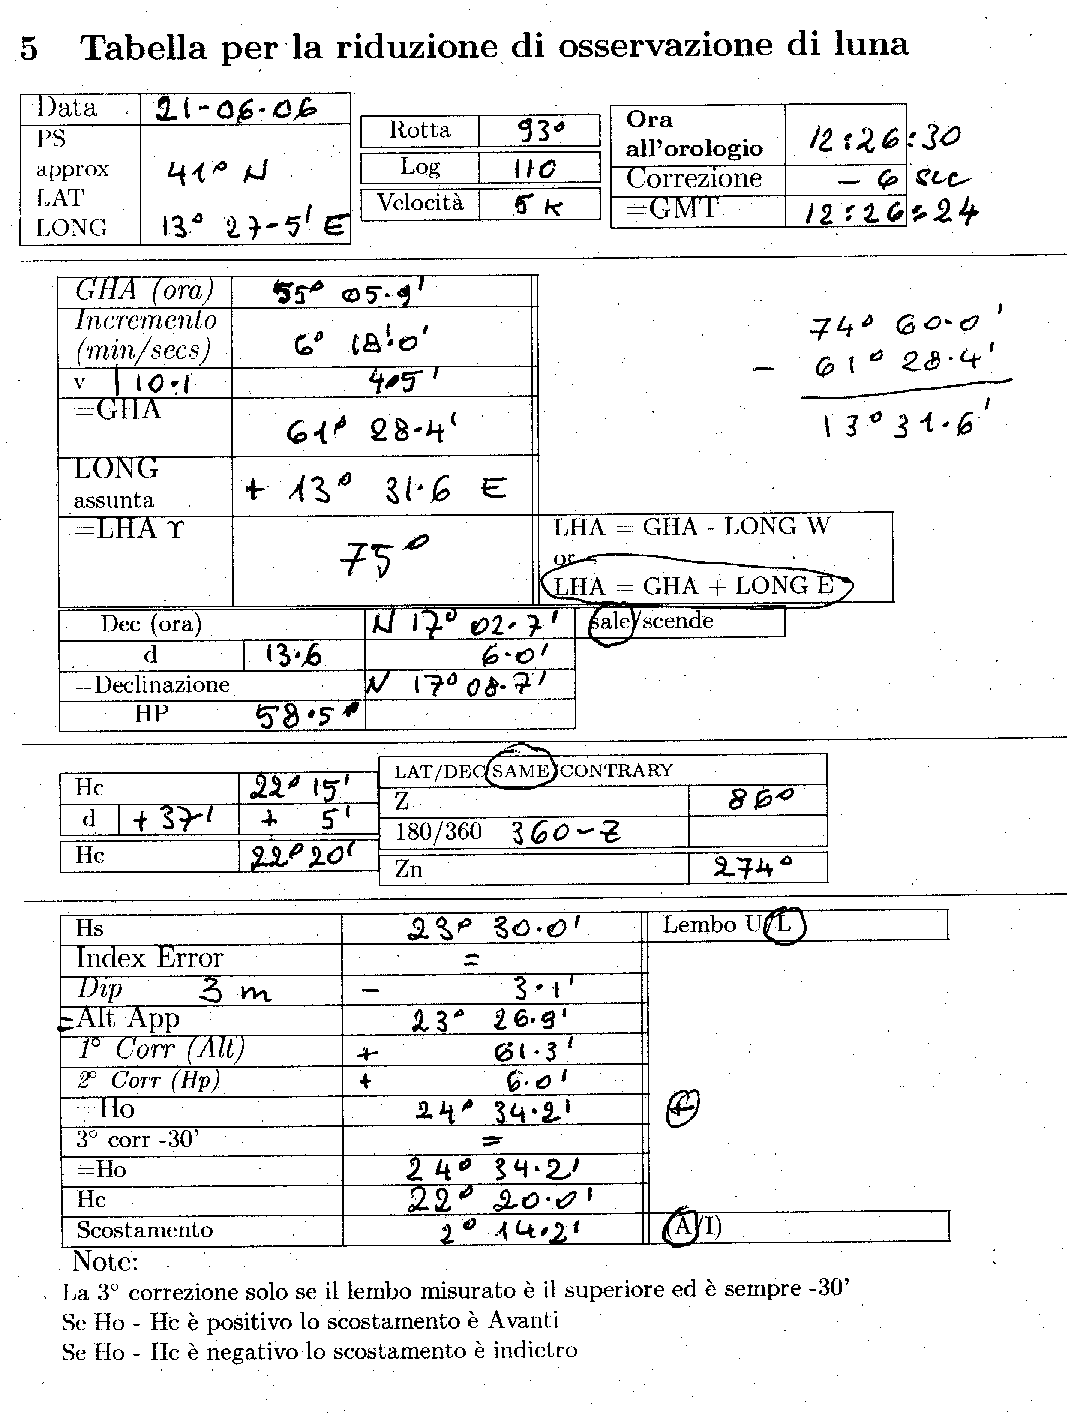 5 Tabella per la riduzione di osservazione di luna
Data 21-06-06
PS
approx 41° N
LAT
LONG 13° 27-5' E
Rotta 93°
Log 110
Velocità 5 K
Ora
all'orologio 12:26:30
Correzione - 6 sec
=GMT 12:26:24
GHA (ora) 55° 05.9'
Incremento
(min/secs) 6° 18.0'
v 10.1 4.5'
=GHA
61° 28.4'
LONG
assunta + 13° 31.6 E
=LHA ϒ
75°
74° 60.0'
- 61° 28.4'
13° 31.6'
LHA = GHA - LONG W
or
LHA = GHA + LONG E
Dec (ora) N 17° 02.7' sale/scende
d 13.6 6.0'
=Declinazione N 17° 08.7'
HP 58.5'
Hc 22° 15'
d +37' + 5'
Hc 22° 20'
LAT/DEC SAME/CONTRARY
Z 86°
180/360 360-Z
Zn 274°
Hs 23° 30.0' Lembo U/L
Index Error =
Dip 3 m - 3.1'
=Alt App 23° 26.9'
1° Corr (Alt) + 61.3'
2° Corr (Hp) + 6.0'
=Ho 24° 34.2'
3° corr -30' =
=Ho 24° 34.2'
Hc 22° 20.0'
Scostamento 2° 14.2' (A/I)
Note:
La 3° correzione solo se il lembo misurato è il superiore ed è sempre -30'
Se Ho - Hc è positivo lo scostamento è Avanti
Se Ho - Hc è negativo lo scostamento è indietro